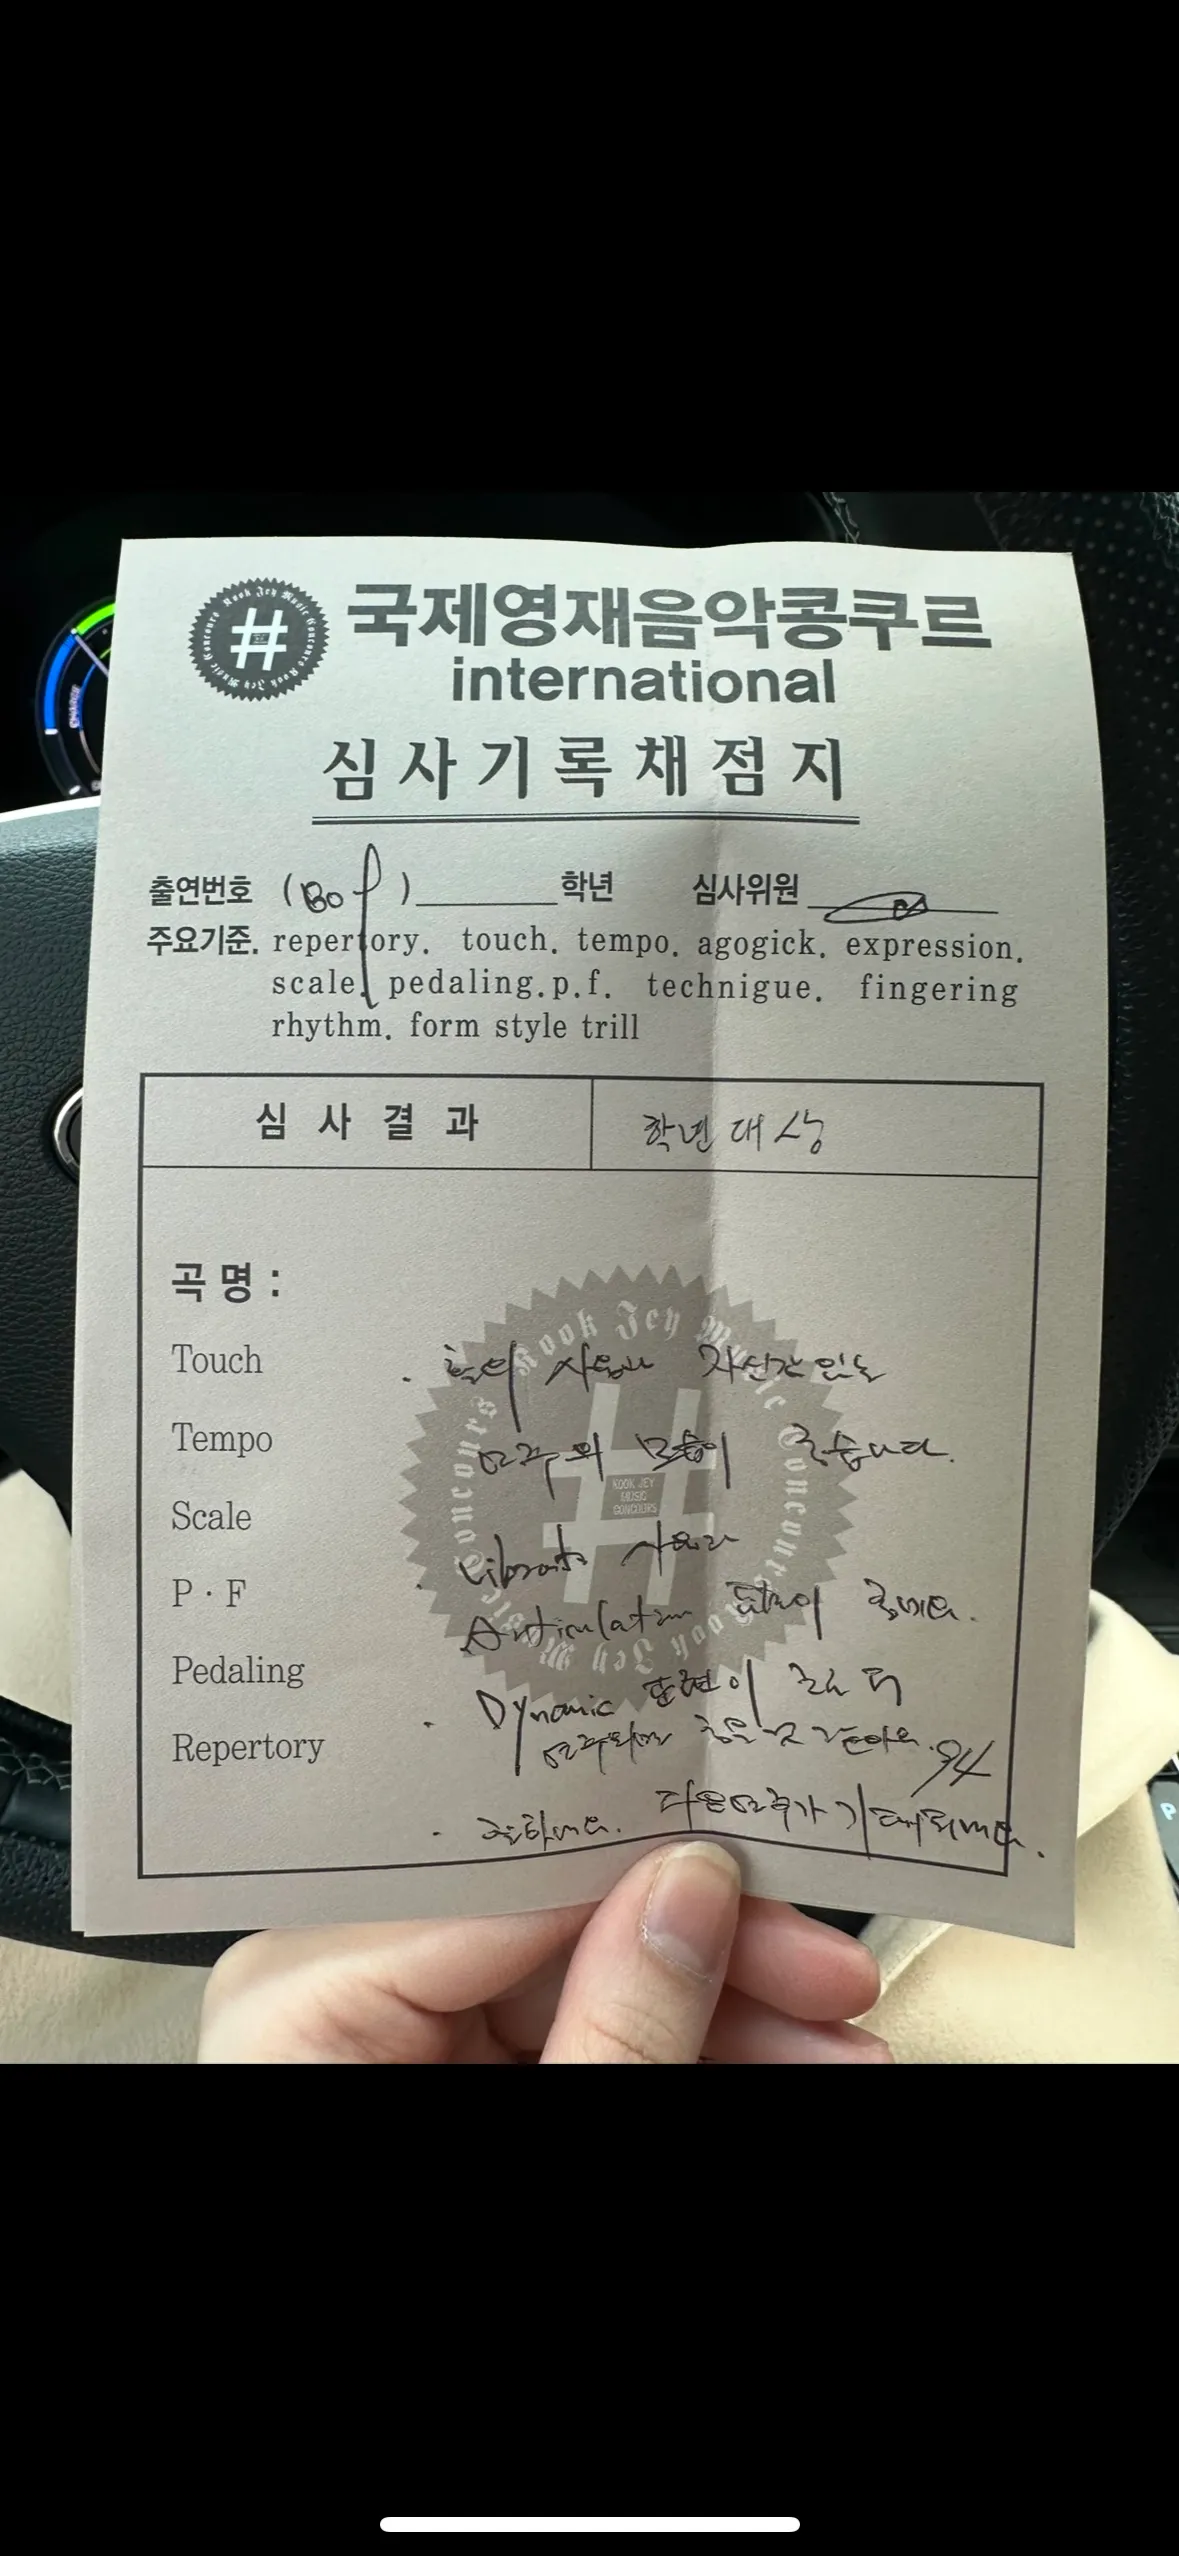 Kook Jey Music Concours Kook Jey Music Concours
국제영재음악콩쿠르
international
심사기록채점지
출연번호 ( ) 학년 심사위원
주요기준. repertory. touch. tempo. agogick. expression.
scale. pedaling.p.f. technigue. fingering
rhythm. form style trill
심사결과 학년대상
곡명 :
Touch
. 활의 사용과 자신감있는
Tempo
연주의 모습이 좋습니다.
Scale
KOOK JEY
MUSIC
CONCOURS
. Vibrato 사용과
P · F
Articulation 표현이 좋네요.
Pedaling
. Dynamic 표현이 좀 더
Repertory
연주되면 좋을 것 같아요.
94
. 잘하네요. 다음연주가 기대되네요.